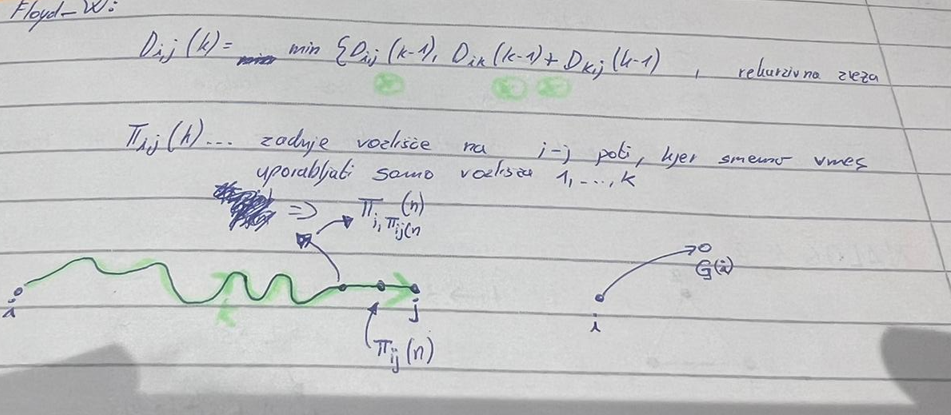 Floyd-W:
D_{ij}(k) = min {D_{ij}(k-1), D_{ik}(k-1) + D_{kj}(k-1) , rekurzivna zveza
π_{ij}(k)... zadnje vozlišče na i-j poti, kjer smemo vmes
uporabljati samo vozlišča 1,...,k
⇒ π_{i,π_{ij}(n}(n)
G(i)
i j i
π_{ij}(n)